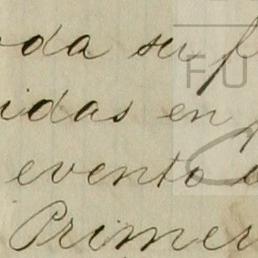 oda su f
idas en
evento
Primer